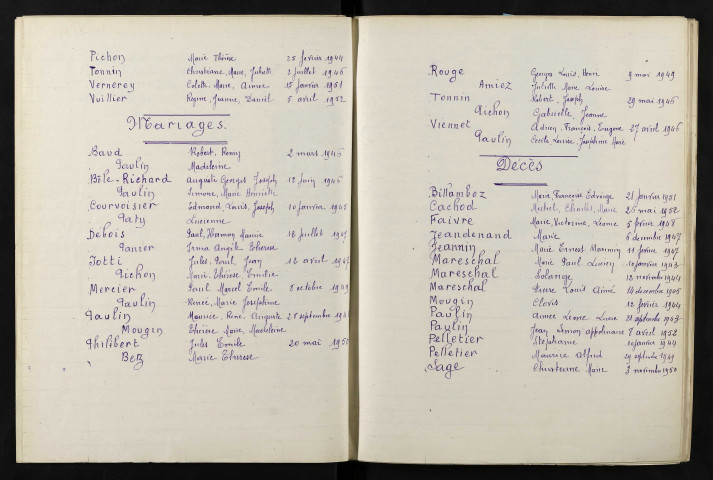 Pichon Marie Thérèse 25 février 1944
Tonnin Christiane, Marie, Juliette 2 juillet 1946
Vernerey Colette, Marie, Aimée 15 janvier 1951
Vuillier Régine, Jeanne, Daniel 5 avril 1952
Mariages.
Baud Robert, Remy 2 mars 1946
Paulin Madeleine
Bôle-Richard Auguste Georges Joseph 12 juin 1946
Paulin Simone, Marie Henriette
Courvoisier Edmond, Louis, Joseph 10 janvier
Paty Lucienne
Debois Paul, Harmon Maurice 18 juillet 1947
Panier Irma Angèle Thérèse
Jotti Jules, Paul, Jean 12 avril
Pichon Marie, Thérèse Emilie
Mercier Paul Marcel Emile 8 octobre 1949
Paulin Renée, Marie Joséphine
Paulin Maurice, René, Auguste 25 septembre
Mougin Thérèse Marie, Madeleine
Philibert Jules Emile 20 mai 1950
Betz Marie Thérèse
Rouge Georges Louis, Henri 9 mai 1949
Amiez Juliette Marie Louise
Tonnin Robert, Joseph 29 mai 1946
Pichon Gabrielle, Jeanne
Viennet Adrien, François, Eugène 27 avril 1946
Paulin Cécile, Louise, Joséphine Marie
Décès
Billamboz Marie Françoise Edwige 21 janvier 1951
Cachod Michel, Charles, Marie 25 mai 1952
Faivre Marie, Victorine, Léonie 5 février 1948
Jeandenand Marie 6 décembre 1947
Jeannin Marie Ernest Maximin 11 février 1947
Mareschal Marie Paul Lucien 10 janvier 1943
Mareschal Solange 12 novembre 1944
Mareschal Pierre Louis Aimé 14 décembre 1945
Mougin Clovis 12 février 1944
Paulin Aimée Léonie Lucie 21 septembre 1943
Paulin Jean Simon Appolinaire 8 avril 1952
Pelletier Stéphanie 10 janvier 1944
Pelletier Maurice Alfred 29 septembre 1949
Sage Christiane Marie 3 novembre 1950